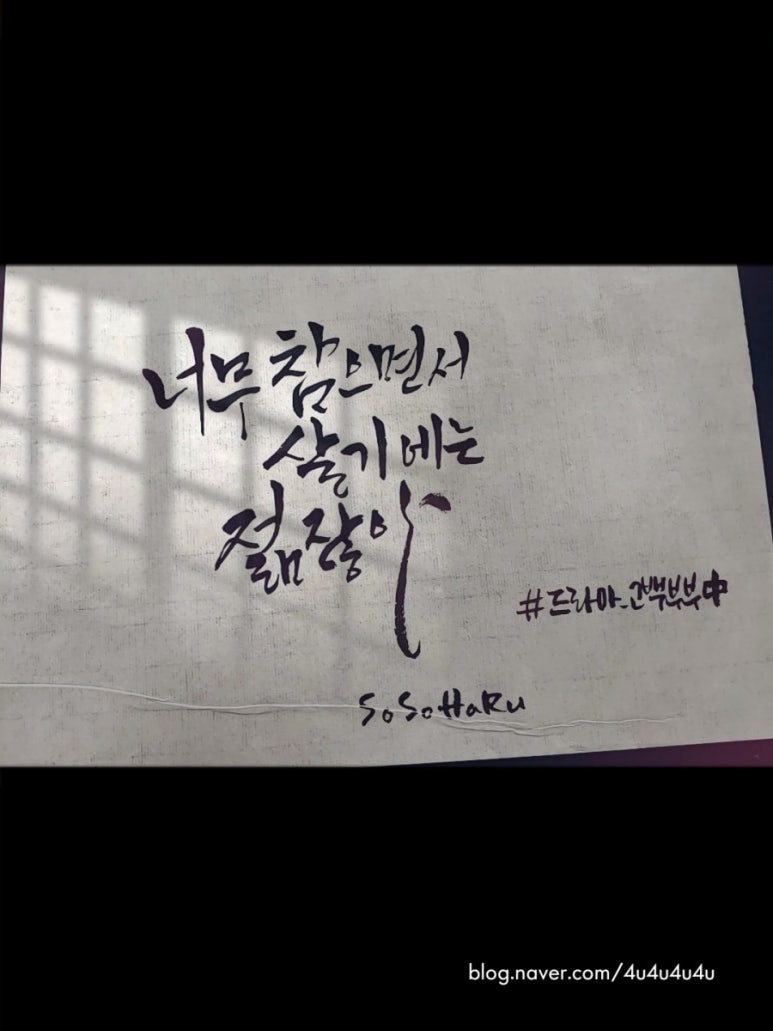 너무 참으면서
살기에는
젊잖아
#드라마_고백부부中
SoSoHaRu
blog.naver.com/4u4u4u4u